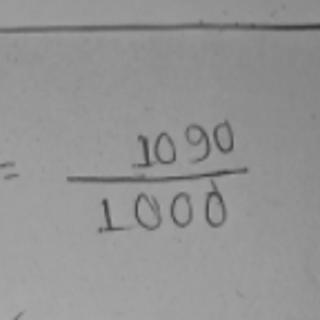 = 1090
1000